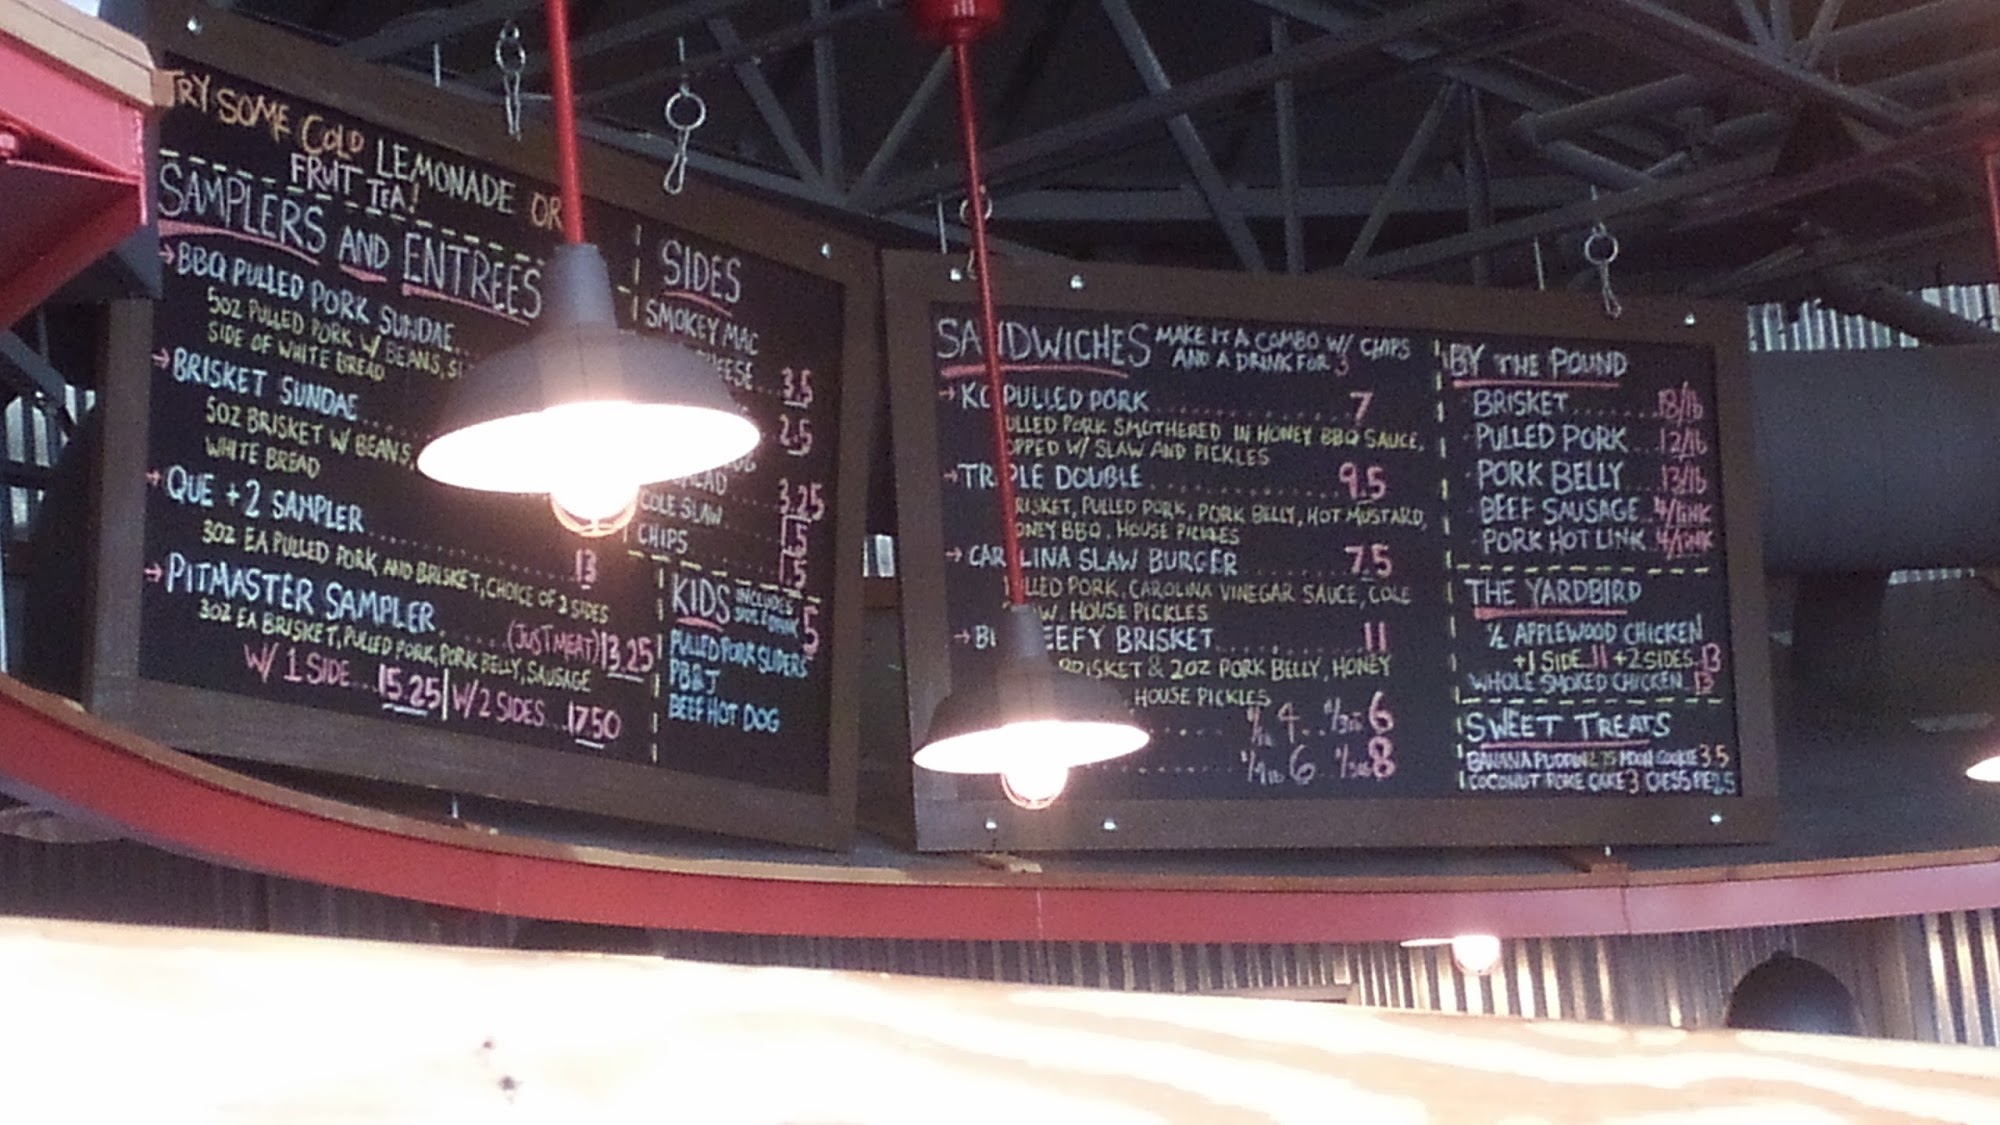 TRY SOME COLD LEMONADE OR
FRUIT TEA!
SAMPLERS AND ENTREES
BBQ PULLED PORK SUNDAE...
5OZ PULLED PORK W/ BEANS,
SIDE OF WHITE BREAD
BRISKET SUNDAE....
5OZ BRISKET W/ BEANS,
WHITE BREAD
QUE + 2 SAMPLER........ 13
3OZ EA PULLED PORK AND BRISKET, CHOICE OF 2 SIDES
PITMASTER SAMPLER....(JUST MEAT) 13.25
3OZ EA BRISKET, PULLED PORK, PORK BELLY, SAUSAGE
W/ 1 SIDE...15.25 | W/ 2 SIDES...17.50
SIDES
SMOKEY MAC
3.5
2.5
3.25
COLE SLAW... 1.5
CHIPS 1.5
KIDS INCLUDES 5
PULLED PORK SLIDERS
PB&J
BEEF HOT DOG
SANDWICHES MAKE IT A COMBO W/ CHIPS
AND A DRINK FOR 3
KC PULLED PORK........ 7
PULLED PORK SMOTHERED IN HONEY BBQ SAUCE,
TOPPED W/ SLAW AND PICKLES
TRIPLE DOUBLE........ 9.5
BRISKET, PULLED PORK, PORK BELLY, HOT MUSTARD,
HONEY BBQ, HOUSE PICKLES
CAROLINA SLAW BURGER...... 7.5
PULLED PORK, CAROLINA VINEGAR SAUCE, COLE
SLAW, HOUSE PICKLES
BEEFY BRISKET....... 11
BRISKET & 2OZ PORK BELLY, HONEY
, HOUSE PICKLES
4 6
6 8
BY THE POUND
BRISKET...... 18/lb
PULLED PORK... 12/lb
PORK BELLY... 13/lb
BEEF SAUSAGE.. 4/LINK
PORK HOT LINK.. 4/LINK
THE YARDBIRD
½ APPLEWOOD CHICKEN
+1 SIDE..11 +2 SIDES..13
WHOLE SMOKED CHICKEN..13
SWEET TREATS
BANANA PUDDIN 2.75 MOON COOKIE 3.5
COCONUT POKE CAKE 3 CHESS PIE 2.5